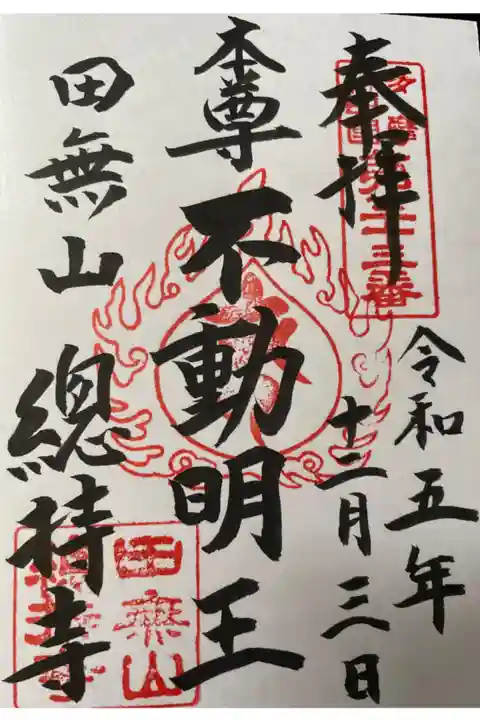 奉拝
多摩
第三十三番
令和五年
十二月三日
本尊不動明王
田無山 總持寺
田無山
總持寺